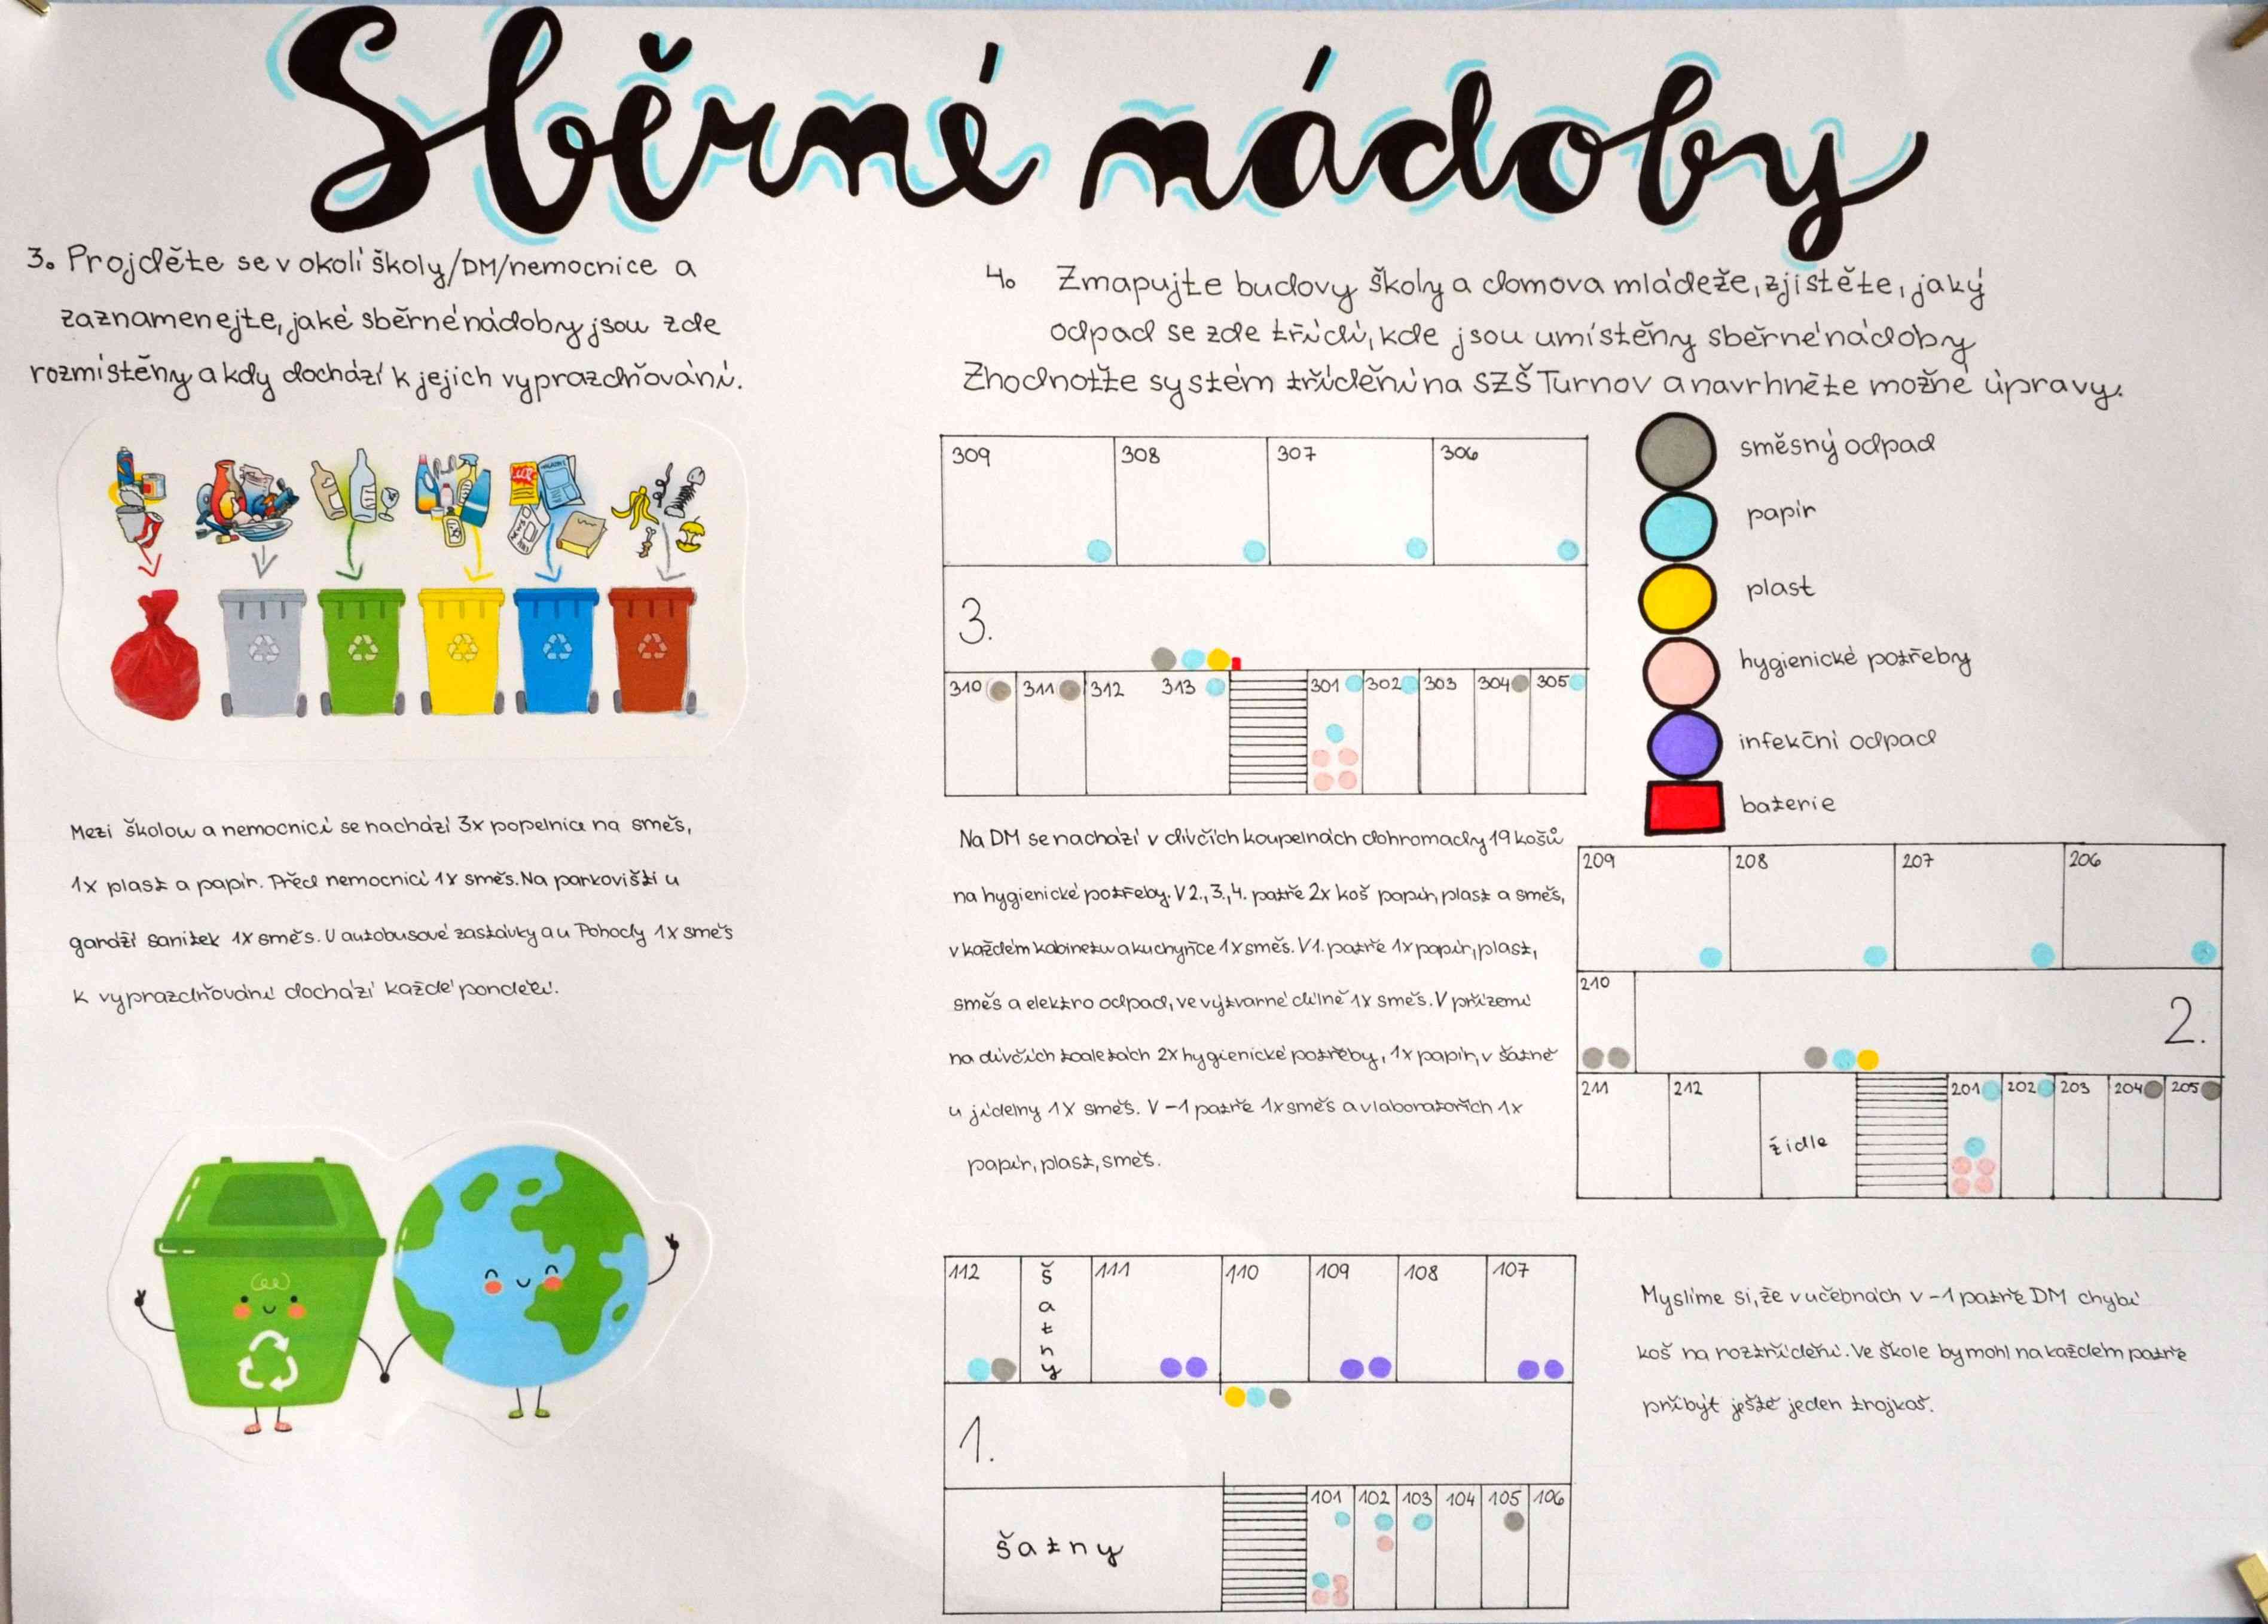 Sběrné nádoby
3. Projděte se v okolí školy/DM/nemocnice a
zaznamenejte, jaké sběrné nádoby jsou zde
rozmístěny a kdy dochází k jejich vyprazdňování.
Mezi školou a nemocnicí se nachází 3x popelnice na směs,
1x plast a papír. Před nemocnicí 1x směs. Na parkovišti u
garáží sanitek 1x směs. U autobusové zastávky a u Pohody 1x směs
K vyprazdňování dochází každé pondělí.
4. Zmapujte budovy školy a domova mládeže, zjistěte, jaký
odpad se zde třídí, kde jsou umístěny sběrné nádoby
Zhodnoťte systém třídění na SZŠ Turnov a navrhněte možné úpravy.
309 308 307 306
3.
310 311 312 313 301 302 303 304 305
směsný odpad
papír
plast
hygienické potřeby
infekční odpad
baterie
Na DM se nachází v dívčích koupelnách dohromady 19 košů
na hygienické potřeby. V 2., 3., 4. patře 2x koš papír, plast a směs,
v každém kabinetu a kuchyňce 1x směs. V 1. patře 1x papír, plast,
směs a elektro odpad, ve výtvarné dílně 1x směs. V přízemí
na dívčích toaletách 2x hygienické potřeby, 1x papír, v šatně
u jídelny 1x směs. V -1 patře 1x směs a v laboratořích 1x
papír, plast, směs.
209 208 207 206
210
2.
211 212 židle 201 202 203 204 205
112 šatny 111 110 109 108 107
1.
šatny 101 102 103 104 105 106
Myslíme si, že v učebnách v -1 patře DM chybí
koš na roztřídění. Ve škole by mohl na každém patře
přibýt ještě jeden trojkoš.